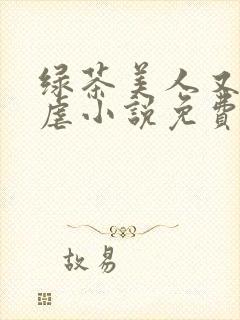 绿茶美人又
虐小説免費
故易